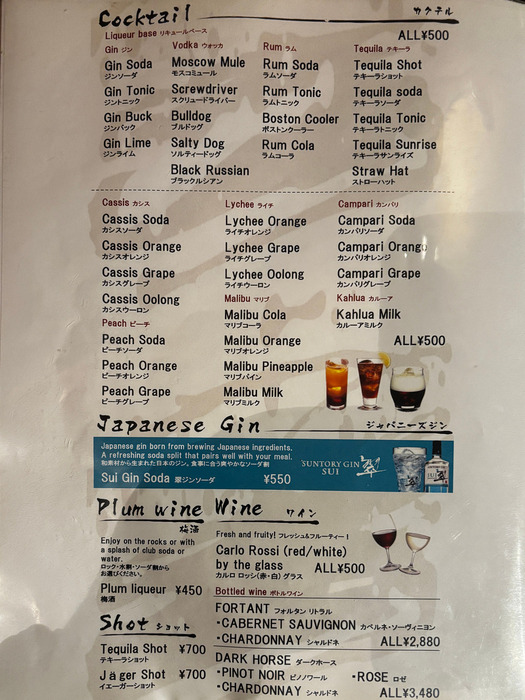 Cocktail カクテル
Liqueur base リキュールベース ALL¥500
Gin ジン
Gin Soda
ジンソーダ
Gin Tonic
ジントニック
Gin Buck
ジンバック
Gin Lime
ジンライム
Vodka ウォッカ
Moscow Mule
モスコミュール
Screwdriver
スクリュードライバー
Bulldog
ブルドッグ
Salty Dog
ソルティードッグ
Black Russian
ブラックルシアン
Rum ラム
Rum Soda
ラムソーダ
Rum Tonic
ラムトニック
Boston Cooler
ボストンクーラー
Rum Cola
ラムコーラ
Tequila テキーラ
Tequila Shot
テキーラショット
Tequila soda
テキーラソーダ
Tequila Tonic
テキーラトニック
Tequila Sunrise
テキーラサンライズ
Straw Hat
ストローハット
Cassis カシス
Cassis Soda
カシスソーダ
Cassis Orange
カシスオレンジ
Cassis Grape
カシスグレープ
Cassis Oolong
カシスウーロン
Peach ピーチ
Peach Soda
ピーチソーダ
Peach Orange
ピーチオレンジ
Peach Grape
ピーチグレープ
Lychee ライチ
Lychee Orange
ライチオレンジ
Lychee Grape
ライチグレープ
Lychee Oolong
ライチウーロン
Malibu マリブ
Malibu Cola
マリブコーラ
Malibu Orange
マリブオレンジ
Malibu Pineapple
マリブパイン
Malibu Milk
マリブミルク
Campari カンパリ
Campari Soda
カンパリソーダ
Campari Orange
カンパリオレンジ
Campari Grape
カンパリグレープ
Kahlua カルーア
Kahlua Milk
カルーアミルク
ALL¥500
Japanese Gin ジャパニーズジン
Japanese gin born from brewing Japanese ingredients.
A refreshing soda split that pairs well with your meal.
和素材から生まれた日本のジン。食事に合う爽やかなソーダ割
Sui Gin Soda 翠ジンソーダ ¥550
SUNTORY GIN
SUI
翠
Plum wine
梅酒
Enjoy on the rocks or with
a splash of club soda or
water.
ロック・水割・ソーダ割から
お選びください。
Plum liqueur ¥450
梅酒
Shot ショット
Tequila Shot ¥700
テキーラショット
Jäger Shot ¥700
イエーガーショット
Wine ワイン
Fresh and fruity! フレッシュ&フルーティー!
Carlo Rossi (red/white)
by the glass ALL¥500
カルロ ロッシ(赤・白) グラス
Bottled wine ボトルワイン
FORTANT フォルタン リトラル
・CABERNET SAUVIGNON カベルネ・ソーヴィニヨン
・CHARDONNAY シャルドネ ALL¥2,880
DARK HORSE ダークホース
・PINOT NOIR ピノノワール ・ROSE ロゼ
・CHARDONNAY シャルドネ ALL¥3,480